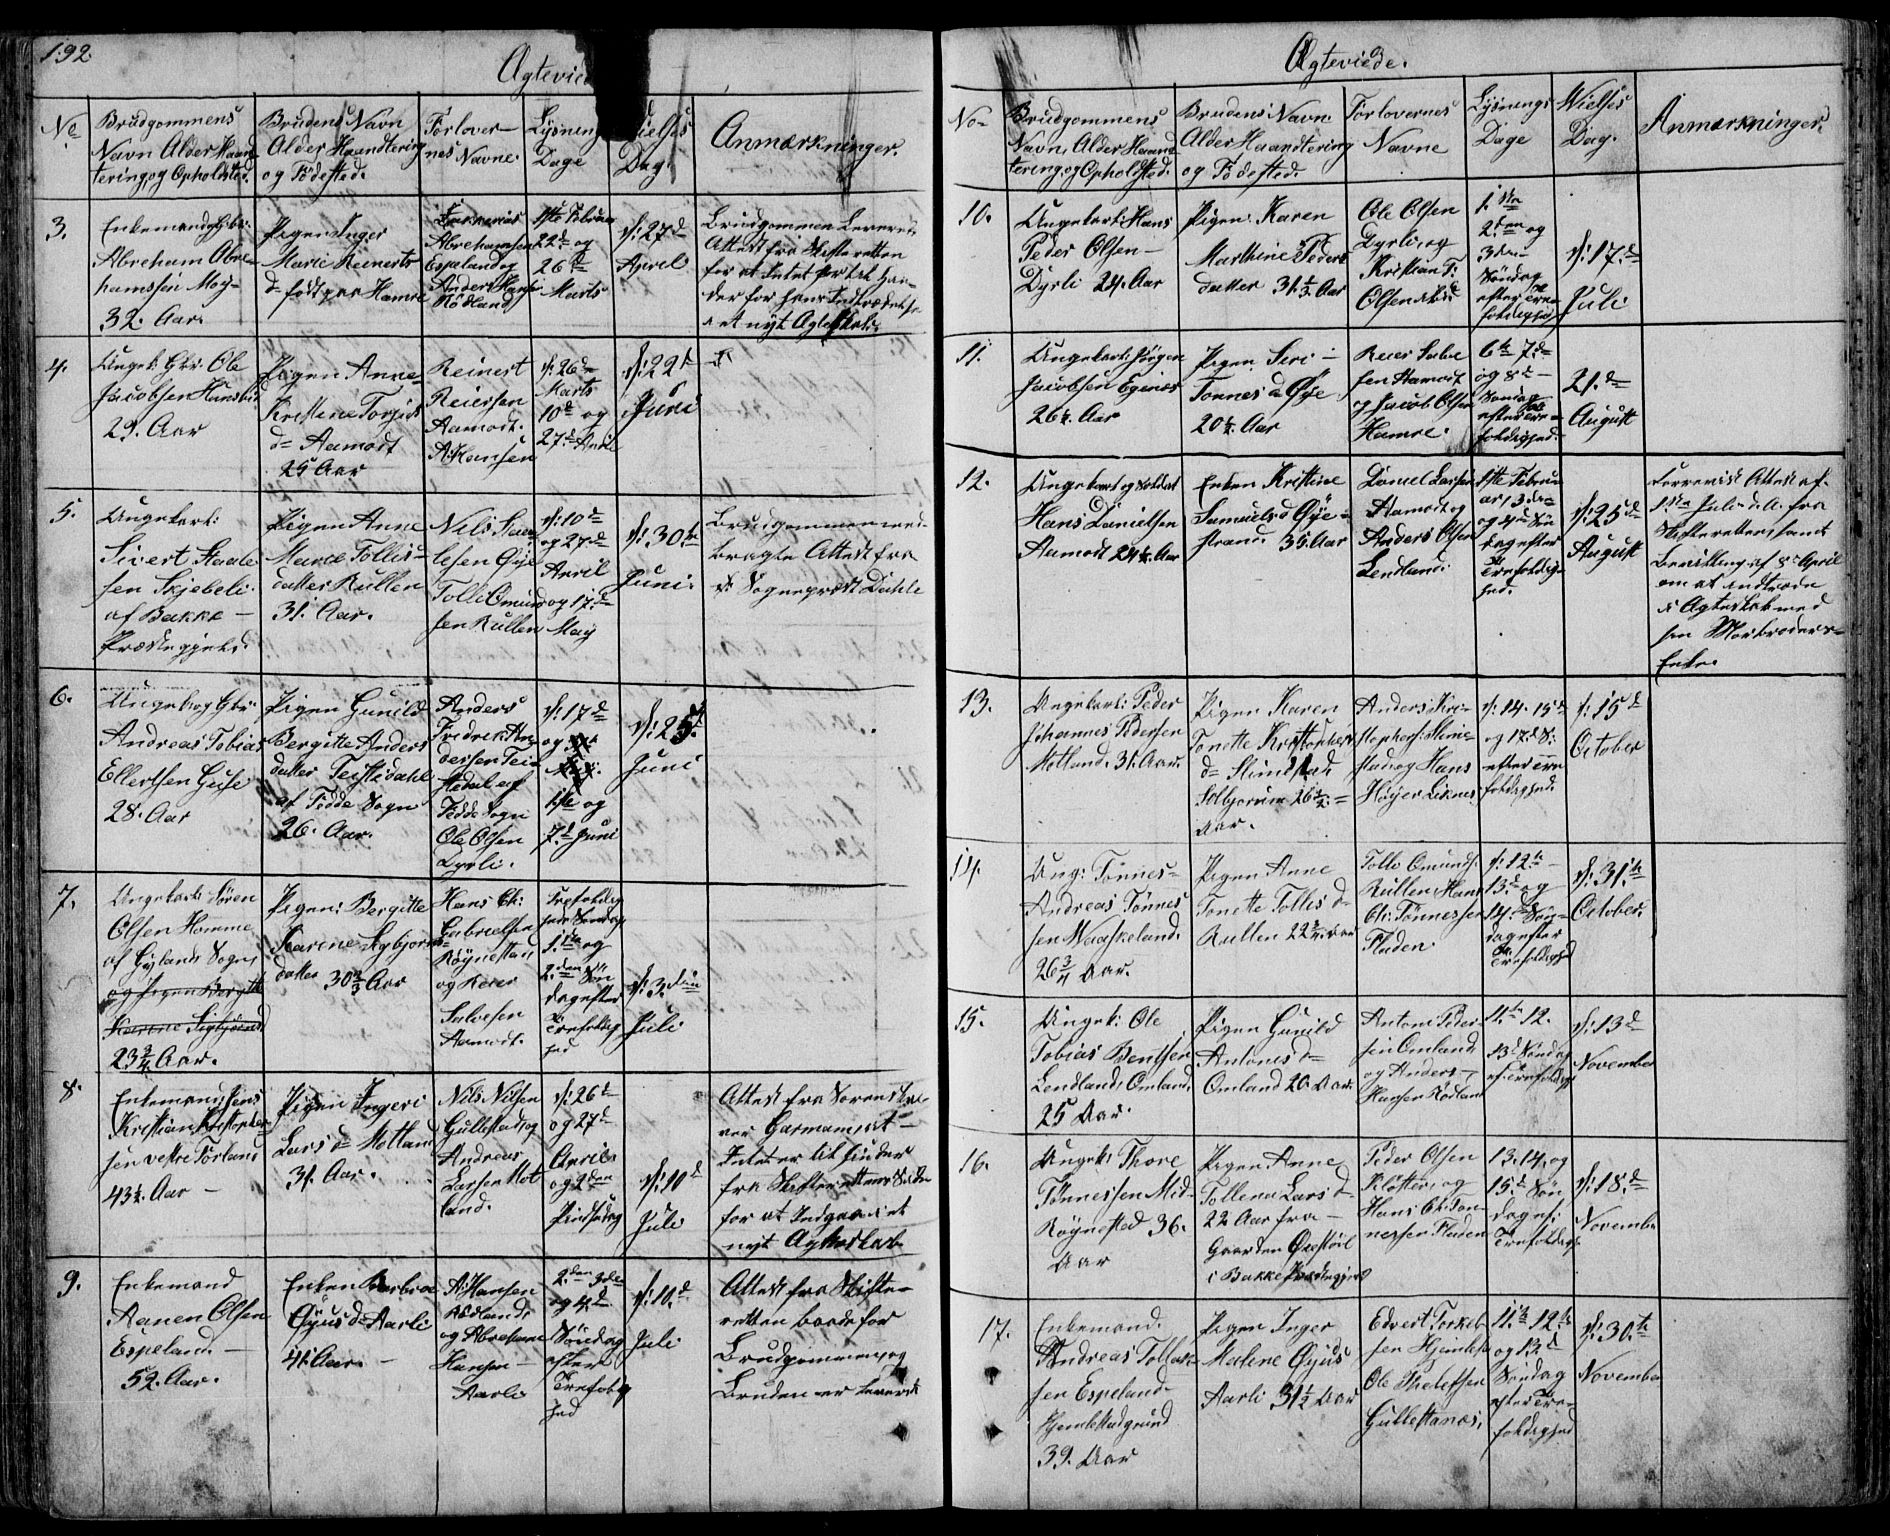 192.
Ægtevied
No
Brudgommens
Navn Alder Haand
tering, og Opholdsted.
Brudens Navn
Alder Haandtering
og Födested.
Forlover-
nes Navne.
Lysning
Dage
Vielses
Dag.
Anmærkninger.
3.
Enkemand Gbr:
Abreham Abre-
hamsen Moy-
32. Aar.
Pigen Inger
Marie Reinerts
d= födt paa Hamre
Abrehamsen
Espeland og
Anders Hansen
Rödland
1ste Februar
22d og
26d
Marts
d: 27d
April
Brudgommen Leverede
Attest fra Skifteretten
for at Intet
der for hans Indtrædelse
i et nyt Ægteskab.
4.
Ungk: Gbr. Ole
Jacobsen
29. Aar
Pigen Anne
Kristine Torjus
d= Aamodt
25 Aar
Reinert
Reiersen
Aamodt.
A: Hansen
d: 26de
Marts
10d og
27d April
d: 22d
Juni
5.
Ungekarl:
Sivert Staale
sen Skjebeli
af Bakke
Præstegjeld.
Pigen Anne
Marie Tollis-
datter Rullen
31. Aar.
Nils
Öye
Tolli Omund
sen Rullen
d: 10de
og 27de
April
og 17de
May
d: 30te
Juni.
Brudgommen med-
bragte Attest fra
Hr Sogneprest Dahle
6.
Ungek og Gbr.
Andreas Tobias
Ellertsen
28. Aar
Pigen Gunild
Bergitte Anders
datter Teistedahl
af Fedde Sogn
26. Aar.
Anders
Fredrik An
dersen Tei-
stedal af
Fedde Sogn
Ole Olsen
Dyrli.
d: 17de
og
1ste og
7d Juni
d: 25d
Juni
7.
Ungekarl Sören
Olsen Homme
af Gylands Sogn,
og Pigen Bergitte
Karine Sigbjörnsd
23 3/4 Aar.
Pigen: Bergitte
Karine Sigbjörns
datter 30 2/3 Aar
Hans Ch:
Gabrielsen
Röynestad
og Reier
Salvesen
Aamodt.
Trefoldig
heds Söndag
1ste og
2den Sön
dag efter
Trefoldig
hed
d: 3die
Juli
8.
Enkemand Jens
Kristian Kristopher
sen vestre Förland
43 1/2 Aar
Pigen Ingeri
Lars d= Motland
31. Aar.
Nils Nilsen
Gullestad og
Andreas
Larsen Mot
land.
d: 26d
og 27d
April
og 2den
Pindsedag
d: 10d
Juli
Attest fra Sorenskri
ver Garmann at
Intet er til Hinder
fra Skifterettens Side
for at Indgaae i et
nyt Ægteskab
9.
Enkemand
Aanen Olsen
Espeland
52. Aar.
Enken Berbroe
Öyus d= Aarli
41. Aar.
A: Hansen
Rödland
og Abreham
Hansen
Aarli
2den 3die
og 4d
Söndag
efter
Trefoldig
hed
d: 10d
Juli
Attest fra Skifte-
retten baade for
Brudgommen og
Bruden er leveret
Ægteviede.
No
Brudgommens
Navn, Alder Haand
tering og Opholdsted.
Brudens Navn
Alder Haandtering
og Födested.
Forlovernes
Navne
Lysnings
Dage
Vielses
Dag.
Anmærkninger.
10.
Ungekarl: Hans
Peder Olsen
Dyrli 24. Aar
Pigen: Karen
Marthine Peders
datter 31 1/3 Aar
Ole Olsen
Dyrli og
Kristian T:
Olsen
1ste
2den og
3die
Söndag
efter Tre
foldighed
d: 17de
Juli
11.
Ungekarl: Jörgen
Jacobsen Egenæs
26 1/2 Aar
Pigen Siri
Tönnes d= Öye
20 1/2 Aar
Reier Salve
sen Aamodt
og Jacob Olsen
Hamre.
6te 7de
og 8d
Söndag
efter Tre-
foldighed.
21de
August
12.
Ungekarl og Soldat
Hans Danielsen
Aamodt 24 1/2 Aar
Enken Kristine
Samuels d Öye
strand 35 Aar
Daniel Larsen
Aamodt og
Anders Olsen
Lendland:
1ste Februa
ar, 3die
og 4de Sön
dag efter
Trefoldig-
hed.
d: 25de
August
Attest af
1ste Juli d. A. fra
Skifteretten samt
Bevilling af 8d April
om at indtræde
i Ægteskab med
sin Morbroders
Enke.
13.
Ungekarl: Peder
Johannes Pedersen
Motland. 31. Aar.
Pigen Karen
Tonette Kristophers
d= Stimestad
26 1/2 =
Aar.
Anders Kri-
stophers: Stime-
stad og Hans
Höyer Liknes
d: 14. 15d
og 17d S:
efter Tre
foldighed.
d: 15d
October
14.
Ung: Tönnes
Andreas Tönnes
sen Vaaskeland.
26 3/4 Aar.
Pigen Anne
Tonette Tollis d=
Rullen 22 3/4 Aar
Tolle Omunds:
Rullen Hans
Ch: Tönnessen
Fladen
d: 12te
13d og
14. Sön-
dag efter
Trefoldighed
d: 31te
October.
15.
Ungek: Ole
Tobias Berntsen
Lendland, Omland.
25 Aar.
Pigen Gunild
Antones d=
Omland 20. Aar.
Anton Peder
sen Omland
og Anders
Hansen Rödland
11te 12.
13d Söndag
ef. Trefoldig
d: 13d
November
16.
Ungek: Thore
Tönnessen Mid
Röynestad 36.
Aar
Pigen Anne
Tollena Lars d=
22 Aar fra
Gaarden Öxestöil
i Bakke Præstegjeld
Peder Olsen
Klosters, og
Hans Ch: Ton-
nessen Fladen
13. 14. og
15d Sön
dag ef:
Trefoldigh.
d: 18de
November
17.
Enkemand.
Andreas Tollak-
sen Espeland
39. Aar
Pigen Inger
Malene Öyus
Aarli 31 1/2 Aar
Edvert Torkel
sen
Ole Theletsen
Gullestanæs.
11te 12te
og 13d
Söndag
efter Tre
foldighed
d: 30te
November